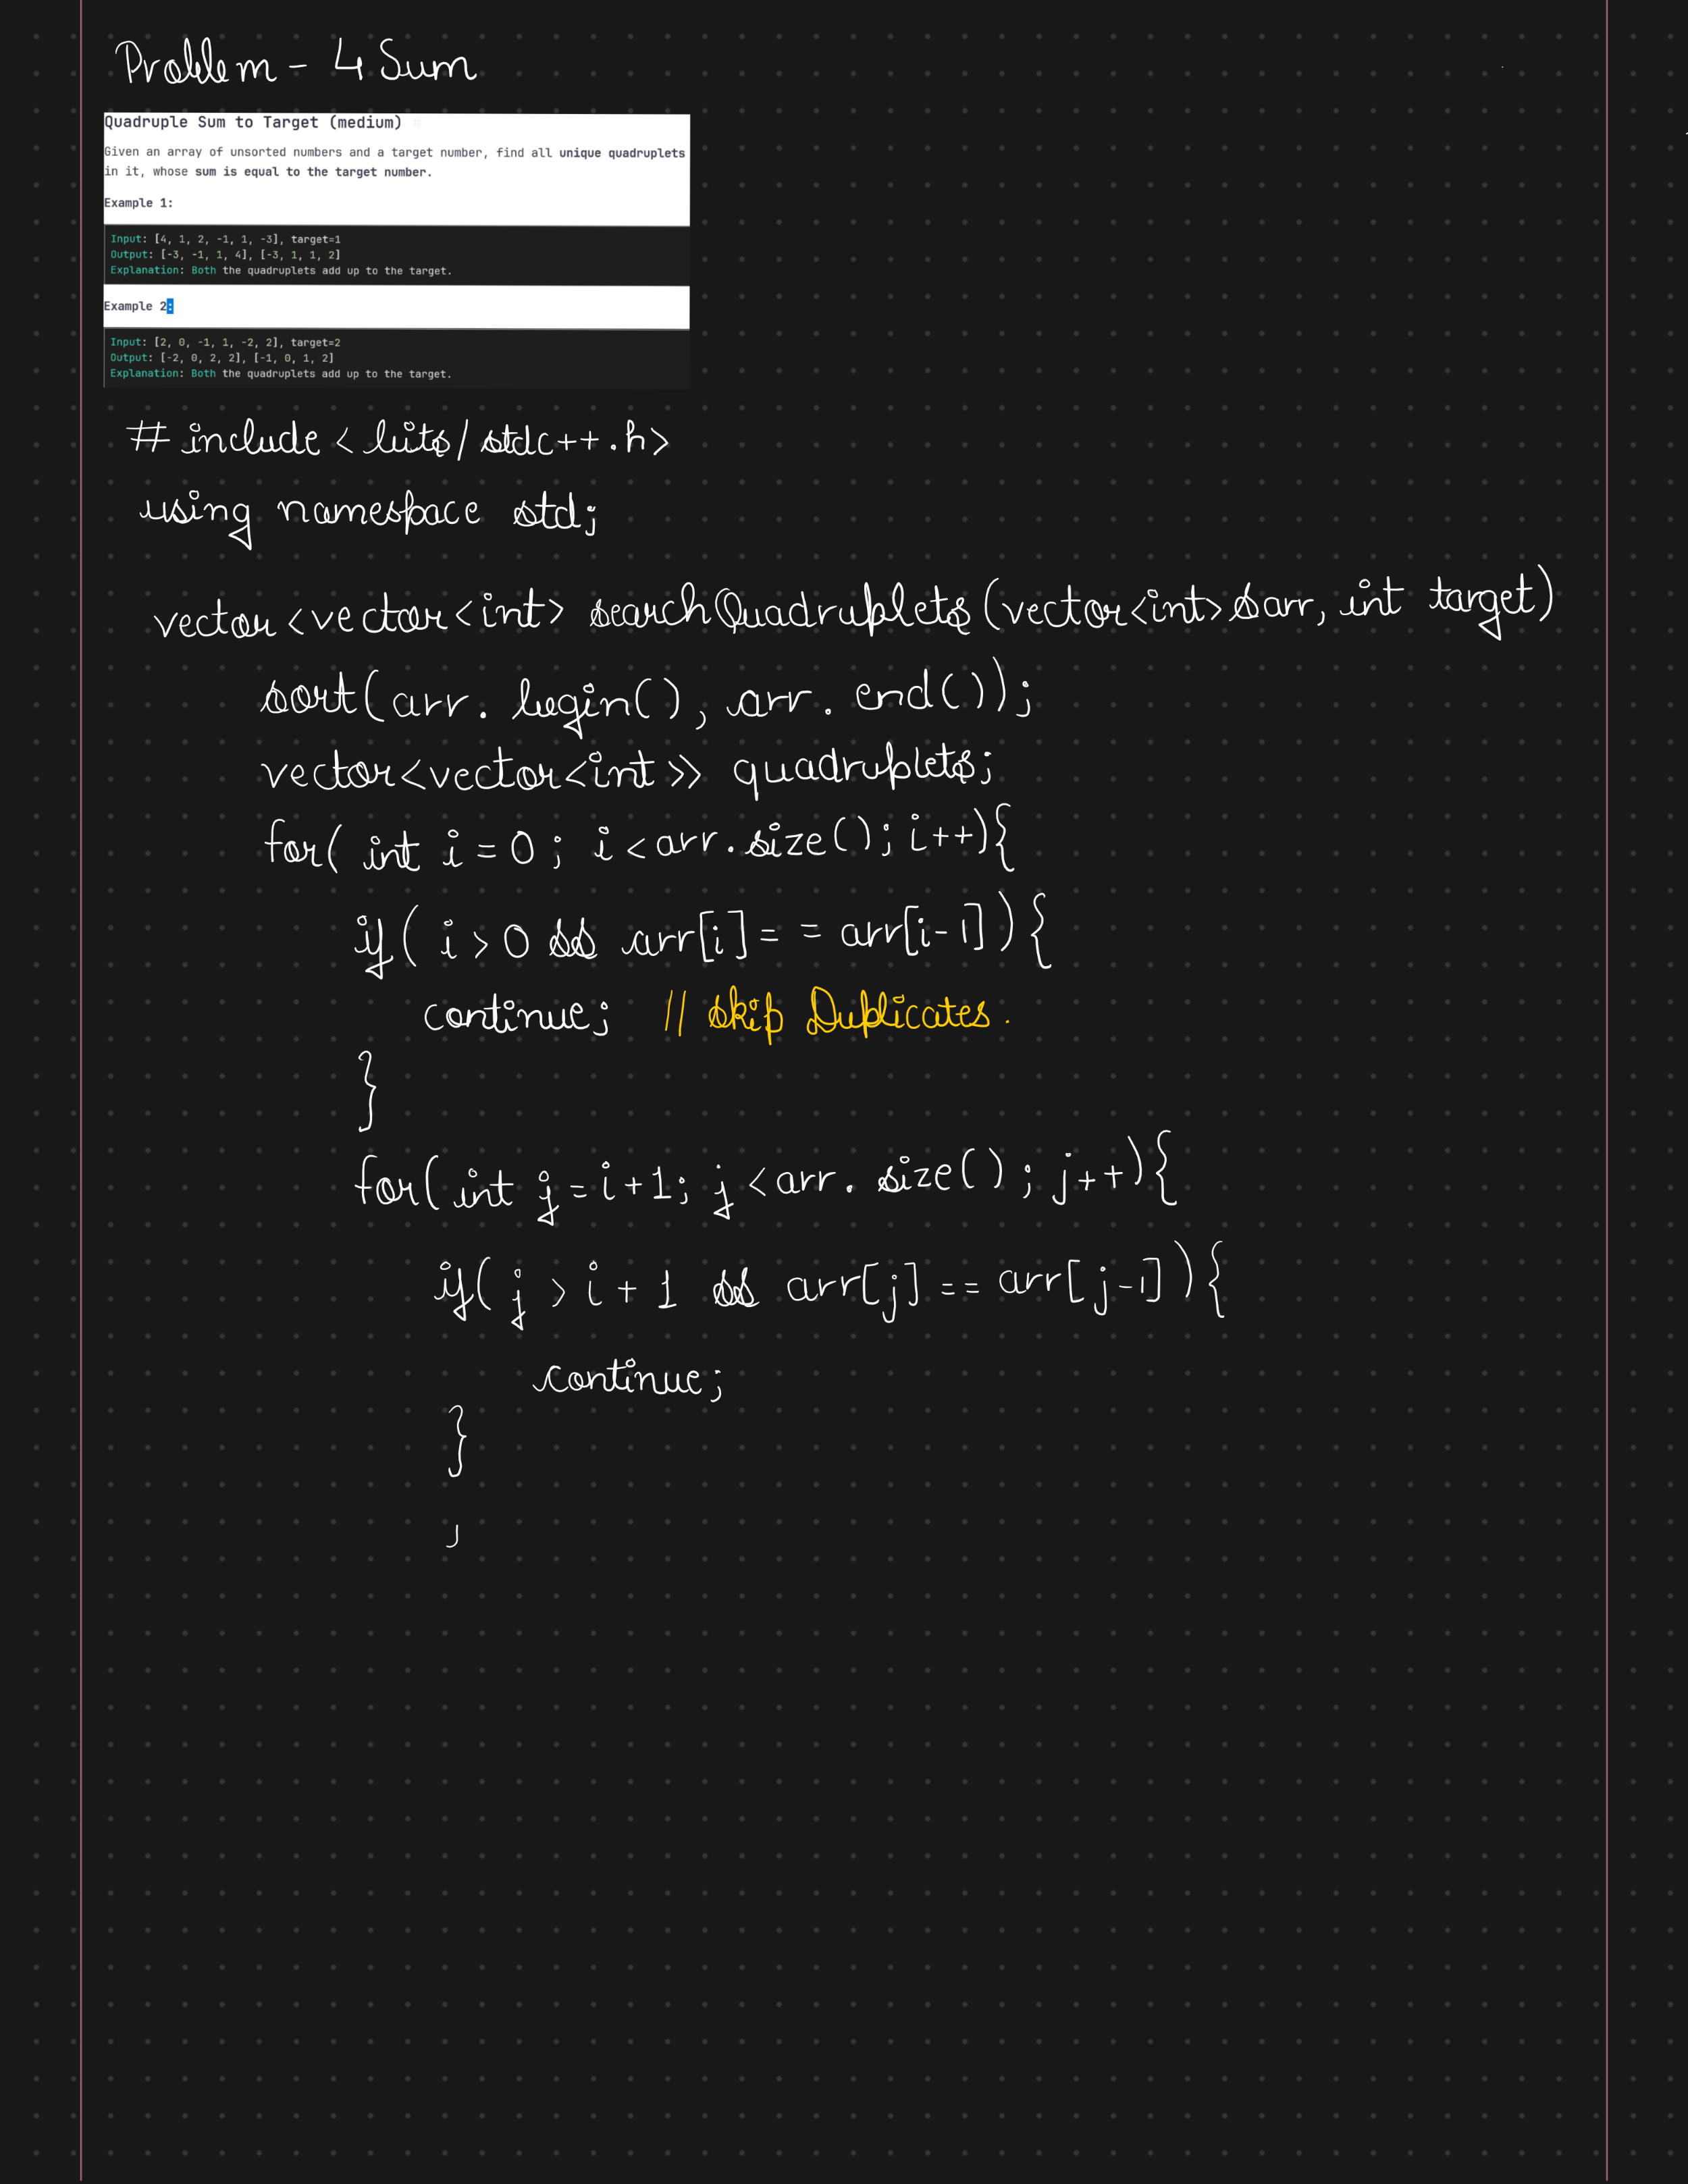 Problem - 4 Sum
Quadruple Sum to Target (medium)
Given an array of unsorted numbers and a target number, find all unique quadruplets
in it, whose sum is equal to the target number.
Example 1:
Input: [4, 1, 2, -1, 1, -3], target=1
Output: [-3, -1, 1, 4], [-3, 1, 1, 2]
Explanation: Both the quadruplets add up to the target.
Example 2:
Input: [2, 0, -1, 1, -2, 2], target=2
Output: [-2, 0, 2, 2], [-1, 0, 1, 2]
Explanation: Both the quadruplets add up to the target.
# include < bits/stdc++.h>
using namespace std;
vector<vector<int> searchQuadruplets (vector<int>&arr, int target)
sort(arr. begin(), arr. end());
vector<vector<int>> quadruplets;
for( int i = 0 ; i < arr.size(); i++){
if( i > 0 && arr[i] = = arr[i-1]){
continue; // Skip Duplicates.
}
for(int j = i+1; j < arr. size(); j++){
if( j > i + 1 && arr[j] == arr[j-1]){
continue;
}